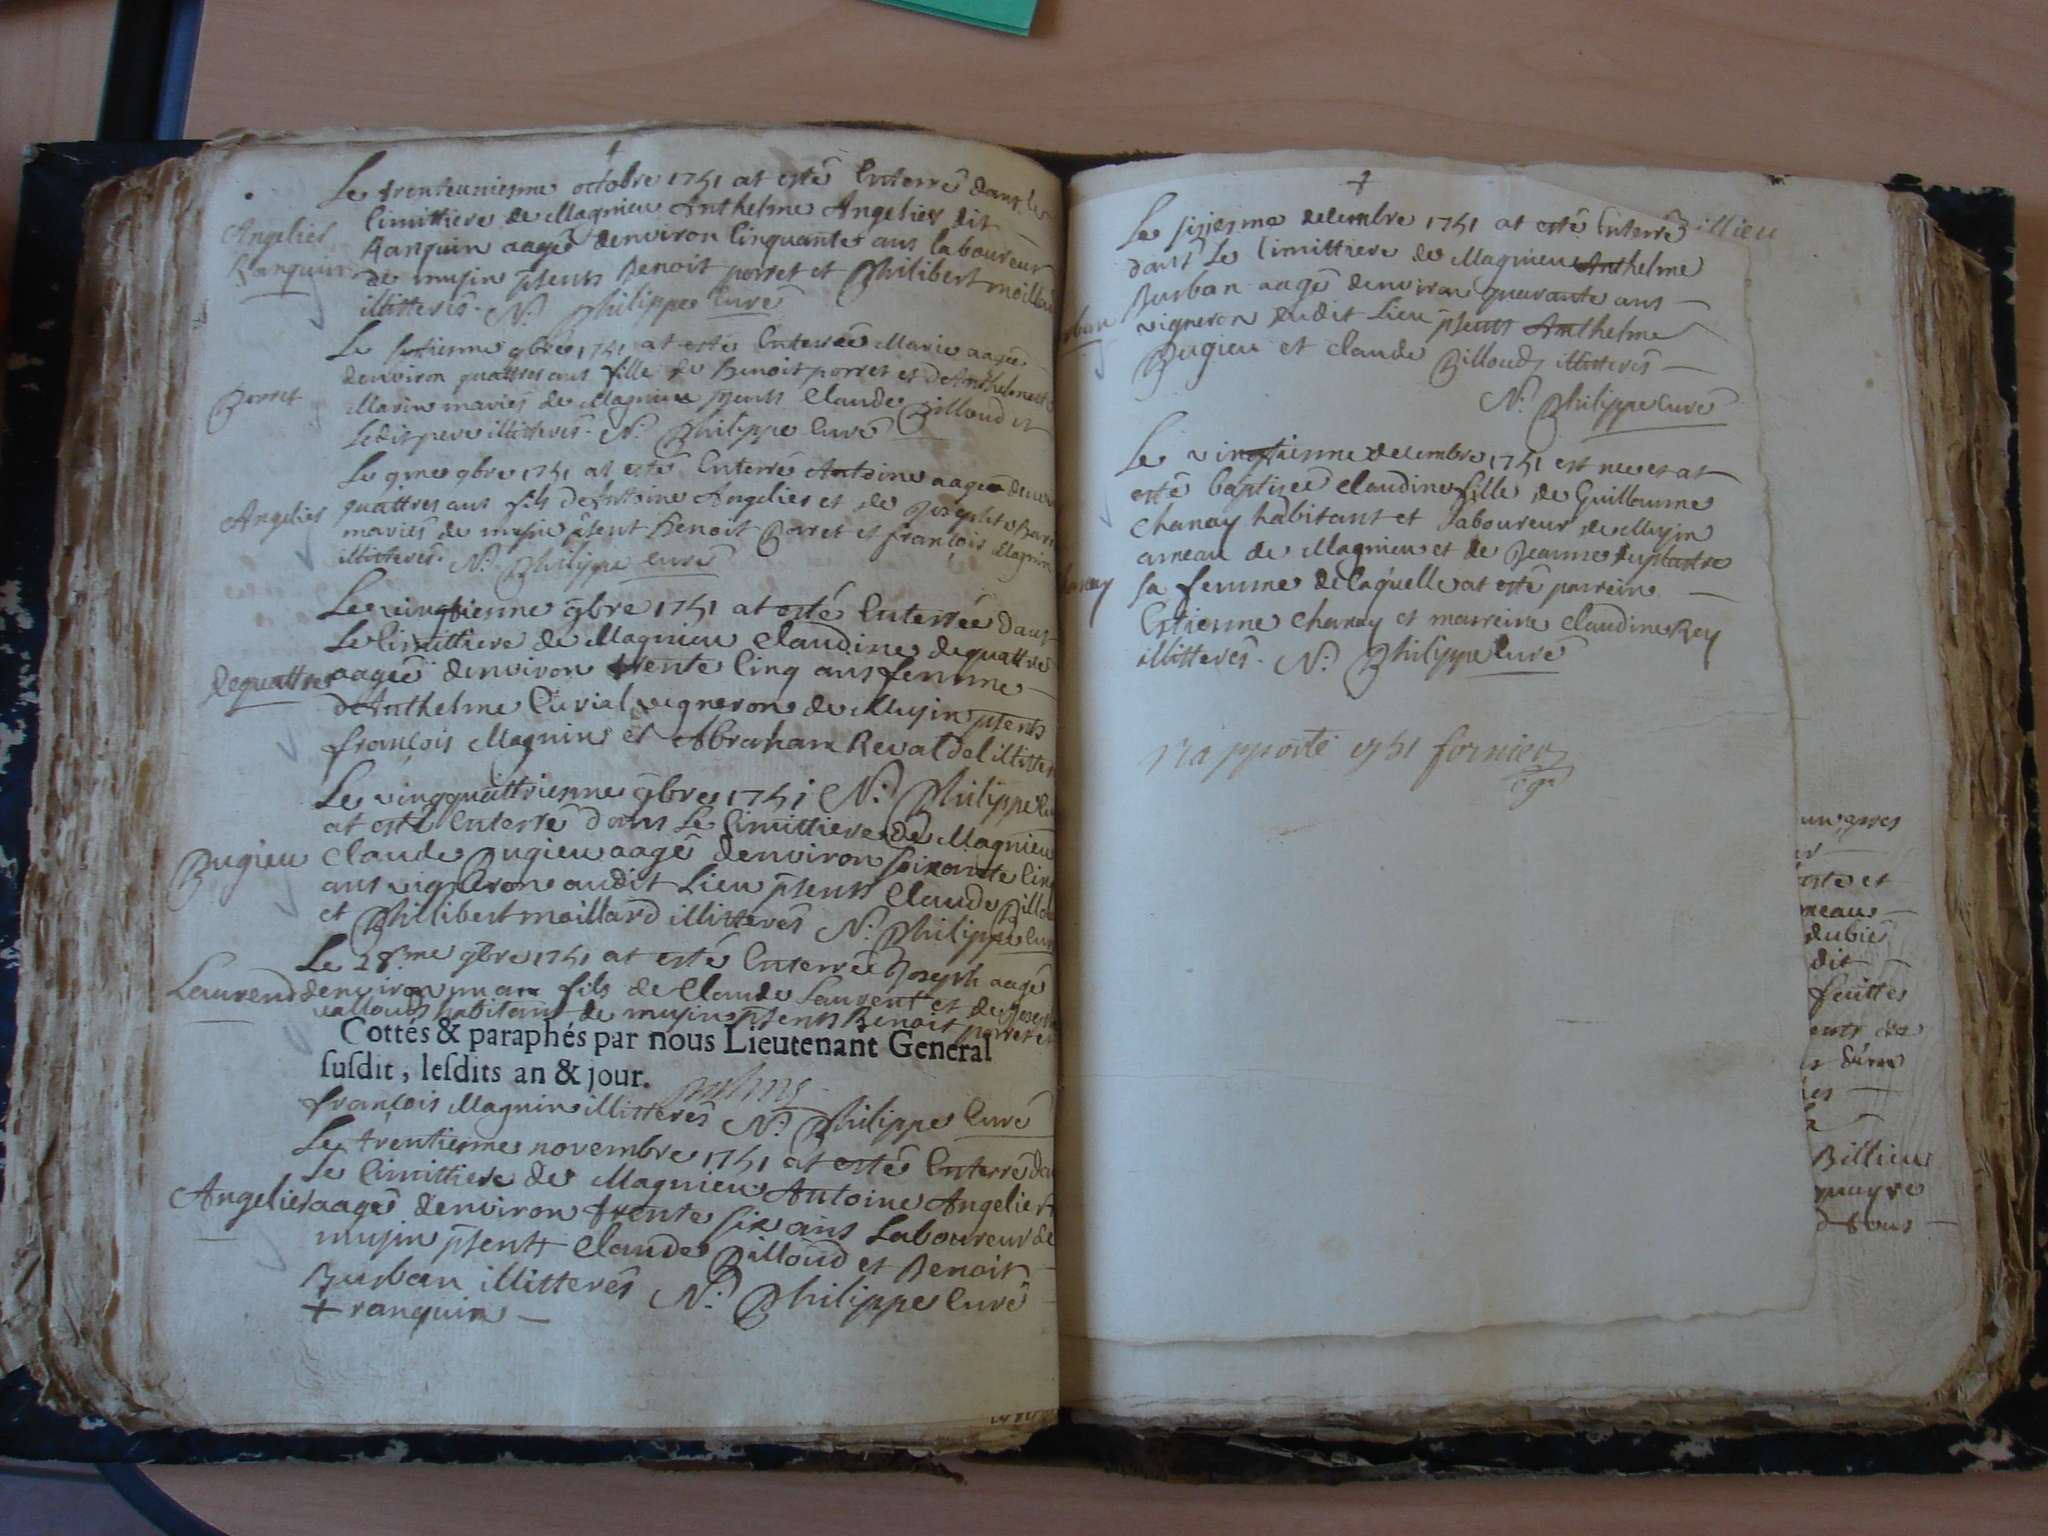 Le trenteuniesme octobre 1751 at esté Enterré dans le
Cimittiere de Magnieu Anthelme Angelier dit
Angelier
Ranquin aagé denviron Cinquante ans laboureur
Ranquin
de musin psents Benoit porret et Philibert moillard
illitterés. N. Philippe Curé
Le 9bre 1751 at esté Enterrée Marie aagée
denviron quattres ans fille de Benoit porret et d'Anthelmette
Porret
Marin mariés de Magnieu psents Claude Billoud et
Ledit pere illitterés. N. Philippe Curé
Le 9me 9bre 1751 at esté Enterré Antoine aagé
quattres ans fils d'Antoine Angelier et de Josephte
Angelier
mariés de musin psent Benoit Porret et françois Magnin
illitterés. N. Philippe Curé
Le vingtiesme 9bre 1751 at esté Enterrée Dans
Le Cimittiere de Magnieu Claudine dequattre
dequattre
aagée denviron trente Cinq ans femme
d'Anthelme Curial vigneron de Musin psents
françois Magnin et Abraham Revatdel
Le vingquattriesme 9bre 1751 N. Philippe
at esté Enterré dans Le Cimittiere de Magnieu
Bugieu
Claude Bugieu aagé denviron soixante Cinq
ans vigneron audit Lieu psents Claude
et Philibert moillard illitterés N. Philippe Curé
Le 28me 9bre 1751 at esté Enterré Joseph aagé
Laurend
denviron un an fils de Claude Laurent et de
habitant de musin psents Benoit porret et
Cottés & paraphés par nous Lieutenant General
susdit, lesdits an & jour.
françois Magnin illitterés N. Philippe Curé
Le trentiesme novembre 1751 at esté Enterré
Le Cimittiere de Magnieu Antoine Angelier +
Angelier
aagé denviron trente six ans Laboureur de
musin psents Claude Billoud et Benoit
Burban illitterés N. Philippe Curé
+ ranquin
Le sisiesme decembre 1751 at esté Enterré
dans Le Cimittiere de Magnieu Anthelme
Burban aagé denviron quarante ans
vigneron dudit Lieu psents Anthelme
Bugieu et Claude Billoud illitterés
N. Philippe Curé
Le vingtiesme decembre 1751 est nee et at
esté baptisée Claudine fille de Guillaume
Chanay habitant et Laboureur de Musin
ameau de Magnieu et de Jeanne
sa femme de laquelle at esté parrein
Estienne Chanay et marreine Claudine Rey
illitterés. N. Philippe Curé
Rapporté 1751 fornier
Billieu